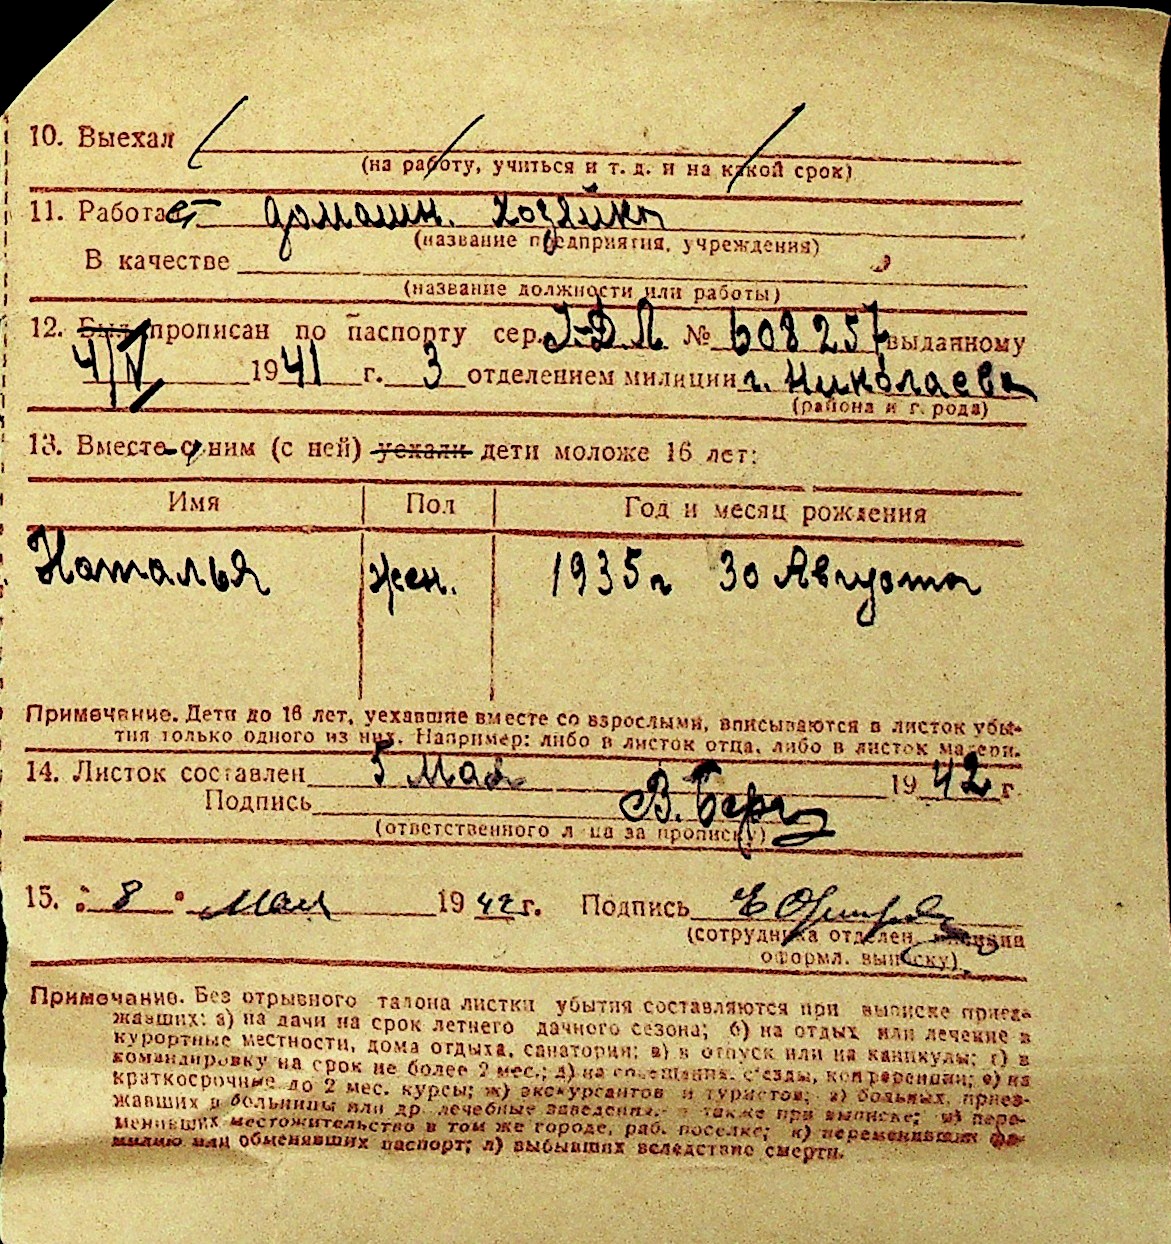 10. Выехал
(на работу, учиться и т. д. и на какой срок)
11. Работает домашн. хозяйка
(название предприятия, учреждения)
В качестве
(название должности или работы)
12. Был прописан по паспорту сер. I-ДЛ № 608257 выданному
4/V 1941 г. 3 отделением милиции г. Николаева
(района и города)
13. Вместе с ним (с ней) уехали дети моложе 16 лет:
Имя Пол Год и месяц рождения
Наталья жен. 1935 г 30 Августа
Примечание. Дети до 16 лет, уехавшие вместе со взрослыми, вписываются в листок убы-
тия только одного из них. Например: либо в листок отца, либо в листок матери.
14. Листок составлен 5 Мая 1942 г.
Подпись В. Берг
(ответственного лица за прописку)
15. „8" мая 1942 г. Подпись
(сотрудника отделен. милиции
оформл. выписку)
Примечание. Без отрывного талона листки убытия составляются при выписке приез-
жавших: а) на дачи на срок летнего дачного сезона; б) на отдых или лечение в
курортные местности, дома отдыха, санатории; в) в отпуск или на каникулы; г) в
командировку на срок не более 2 мес.; д) на совещания, съезды, конференции; е) на
краткосрочные до 2 мес. курсы; ж) экскурсантов и туристов; з) больных, приез-
жавших в больницы или др. лечебные заведения, а также при выписке; и) пере-
менивших местожительство в том же городе, раб. поселке; к) переменивших фа-
милию или обменявших паспорт; л) выбывших вследствие смерти.